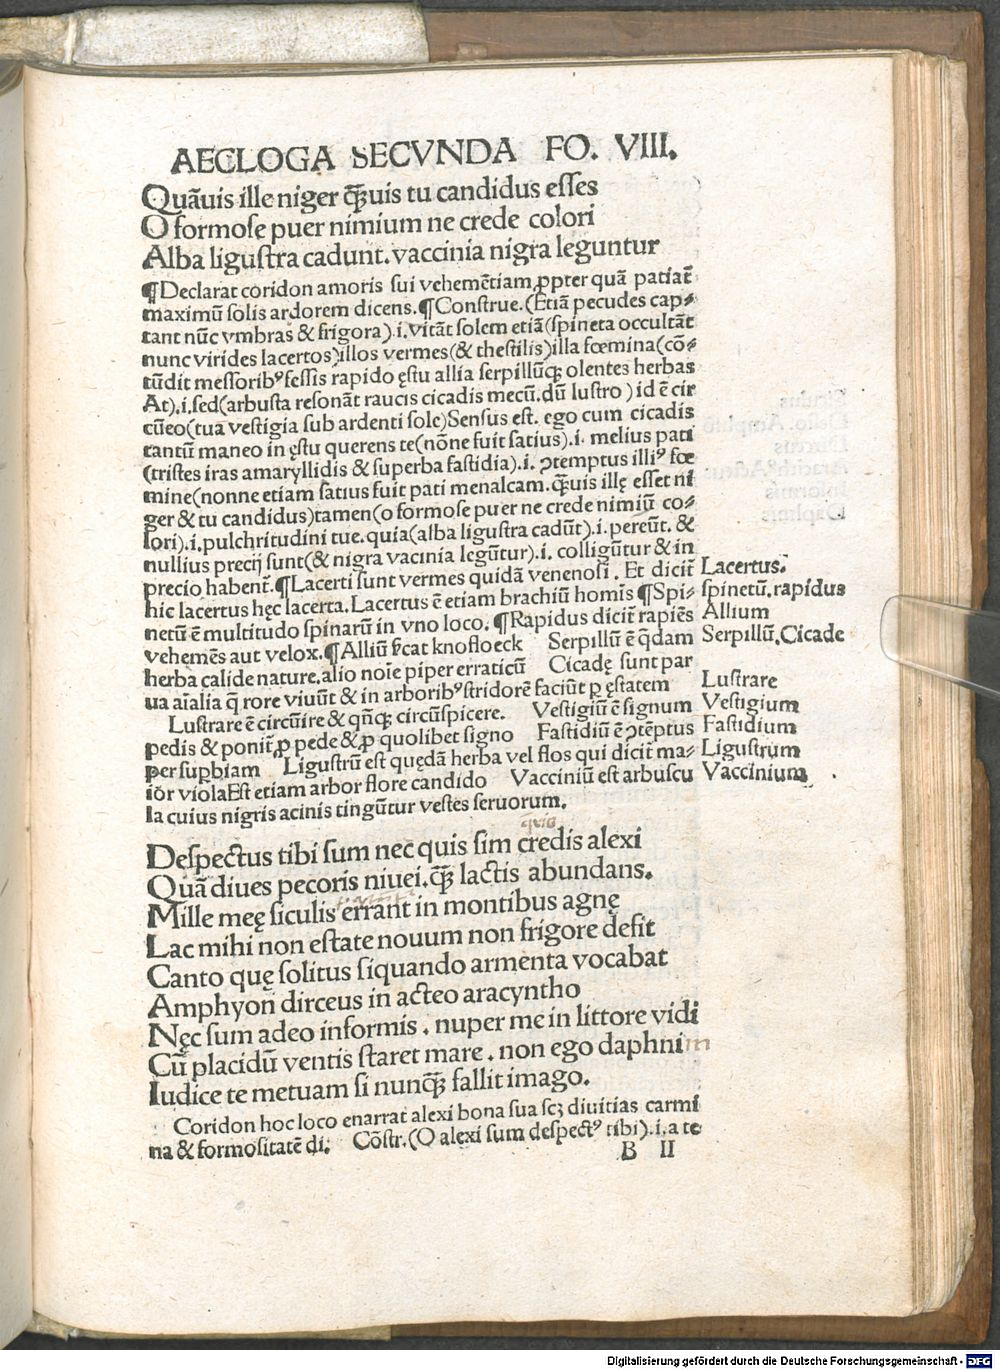 AECLOGA SECVNDA FO. VIII.
Quãuis ille niger q̃uis tu candidus eſſes
O formoſe puer nimium ne crede colori
Alba liguſtra cadunt. vaccinia nigra leguntur
¶Declarat coridon amoris ſui vehemẽtiam ꝓpter quã patiat᷑
maximũ ſolis ardorem dicens.¶Conſtrue.(Etiã pecudes cap⸗
tant nũc vmbras & frigora).i.vitãt ſolem etiã(ſpineta occultãt
nunc virides lacertos)illos vermes(& theſtilis)illa fœmina(cõ⸗
tũdit meſſoribꝰfeſſis rapido ęſtu allia ſerpillũqꝫ olentes herbas
At).i.ſed(arbuſta reſonãt raucis cicadis mecũ.dũ luſtro)id ẽ cir
cũeo(tua veſtigia ſub ardenti ſole)Senſus eſt. ego cum cicadis
tantũ maneo in ęſtu querens te(nõne fuit ſatius).i. melius pati
(triſtes iras amaryllidis & ſuperba faſtidia).i. ꝯtemptus illiꝰ fœ
mine(nonne etiam ſatius fuit pati menalcam.q̃uis illę eſſet ni
ger & tu candidus)tamen(o formoſe puer ne crede nimiũ co⸗
lori).i.pulchritudini tue.quia(alba liguſtra cadũt).i.pereũt. &
nullius precij ſunt(& nigra vacinia legũtur).i. colligũtur & in
precio habent᷑.¶Lacerti ſunt vermes quidã venenoſi. Et dicit᷑
hic lacertus hęc lacerta. Lacertus ẽ etiam brachiũ homīs ¶Spi⸗
netũ ẽ multitudo ſpinarũ in vno loco. ¶Rapidus dicit᷑ rapiẽs
vehemẽs aut velox.¶Alliũ v̓cat knofloeck Serpillũ ẽ q̃dam
herba calide nature. alio noīe piper erraticũ Cicadę ſunt par
ua aīalia q̃ rore viuũt & in arboribꝰſtridorẽ faciũt ꝑ ęſtatem
Luſtrare ẽ circũire & qñqꝫ circũſpicere. Veſtigiũ ẽ ſignum
pedis & ponit᷑ ꝓ pede & ꝓ quolibet ſigno Faſtidiũ ẽ ꝯtẽptus
per ſuꝑbiam Liguſtrũ eſt quędã herba vel flos qui dicit᷑ ma⸗
ior violaEſt etiam arbor flore candido Vacciniũ eſt arbuſcu
la cuius nigris acinis tingũtur veſtes ſeruorum.
Lacertus.
ſpinetũ.rapidus
Allium
Serpillũ.Cicade
Luſtrare
Veſtigium
Faſtidium
Liguſtrum
Vaccinium
quia
Deſpectus tibi ſum nec quis ſim credis alexi
Quã diues pecoris niuei.q̃ lactis abundans.
Mille meę ſiculis errant in montibus agnę
Lac mihi non eſtate nouum non frigore deſit
Canto quę ſolitus ſiquando armenta vocabat
Amphyon dirceus in acteo aracyntho
Nęc ſum adeo informis. nuper me in littore vidi
Cũ placidũ ventis ſtaret mare. non ego daphnim
Iudice te metuam ſi nunq̃ fallit imago.
Coridon hoc loco enarrat alexi bona ſua ſcꝫ diuitias carmi
na & formoſitatẽ di. Cõſtr.(O alexi ſum deſpectꝰ tibi).i.a te
B II
Digitalisierung gefördert durch die Deutsche Forschungsgemeinschaft - DFG